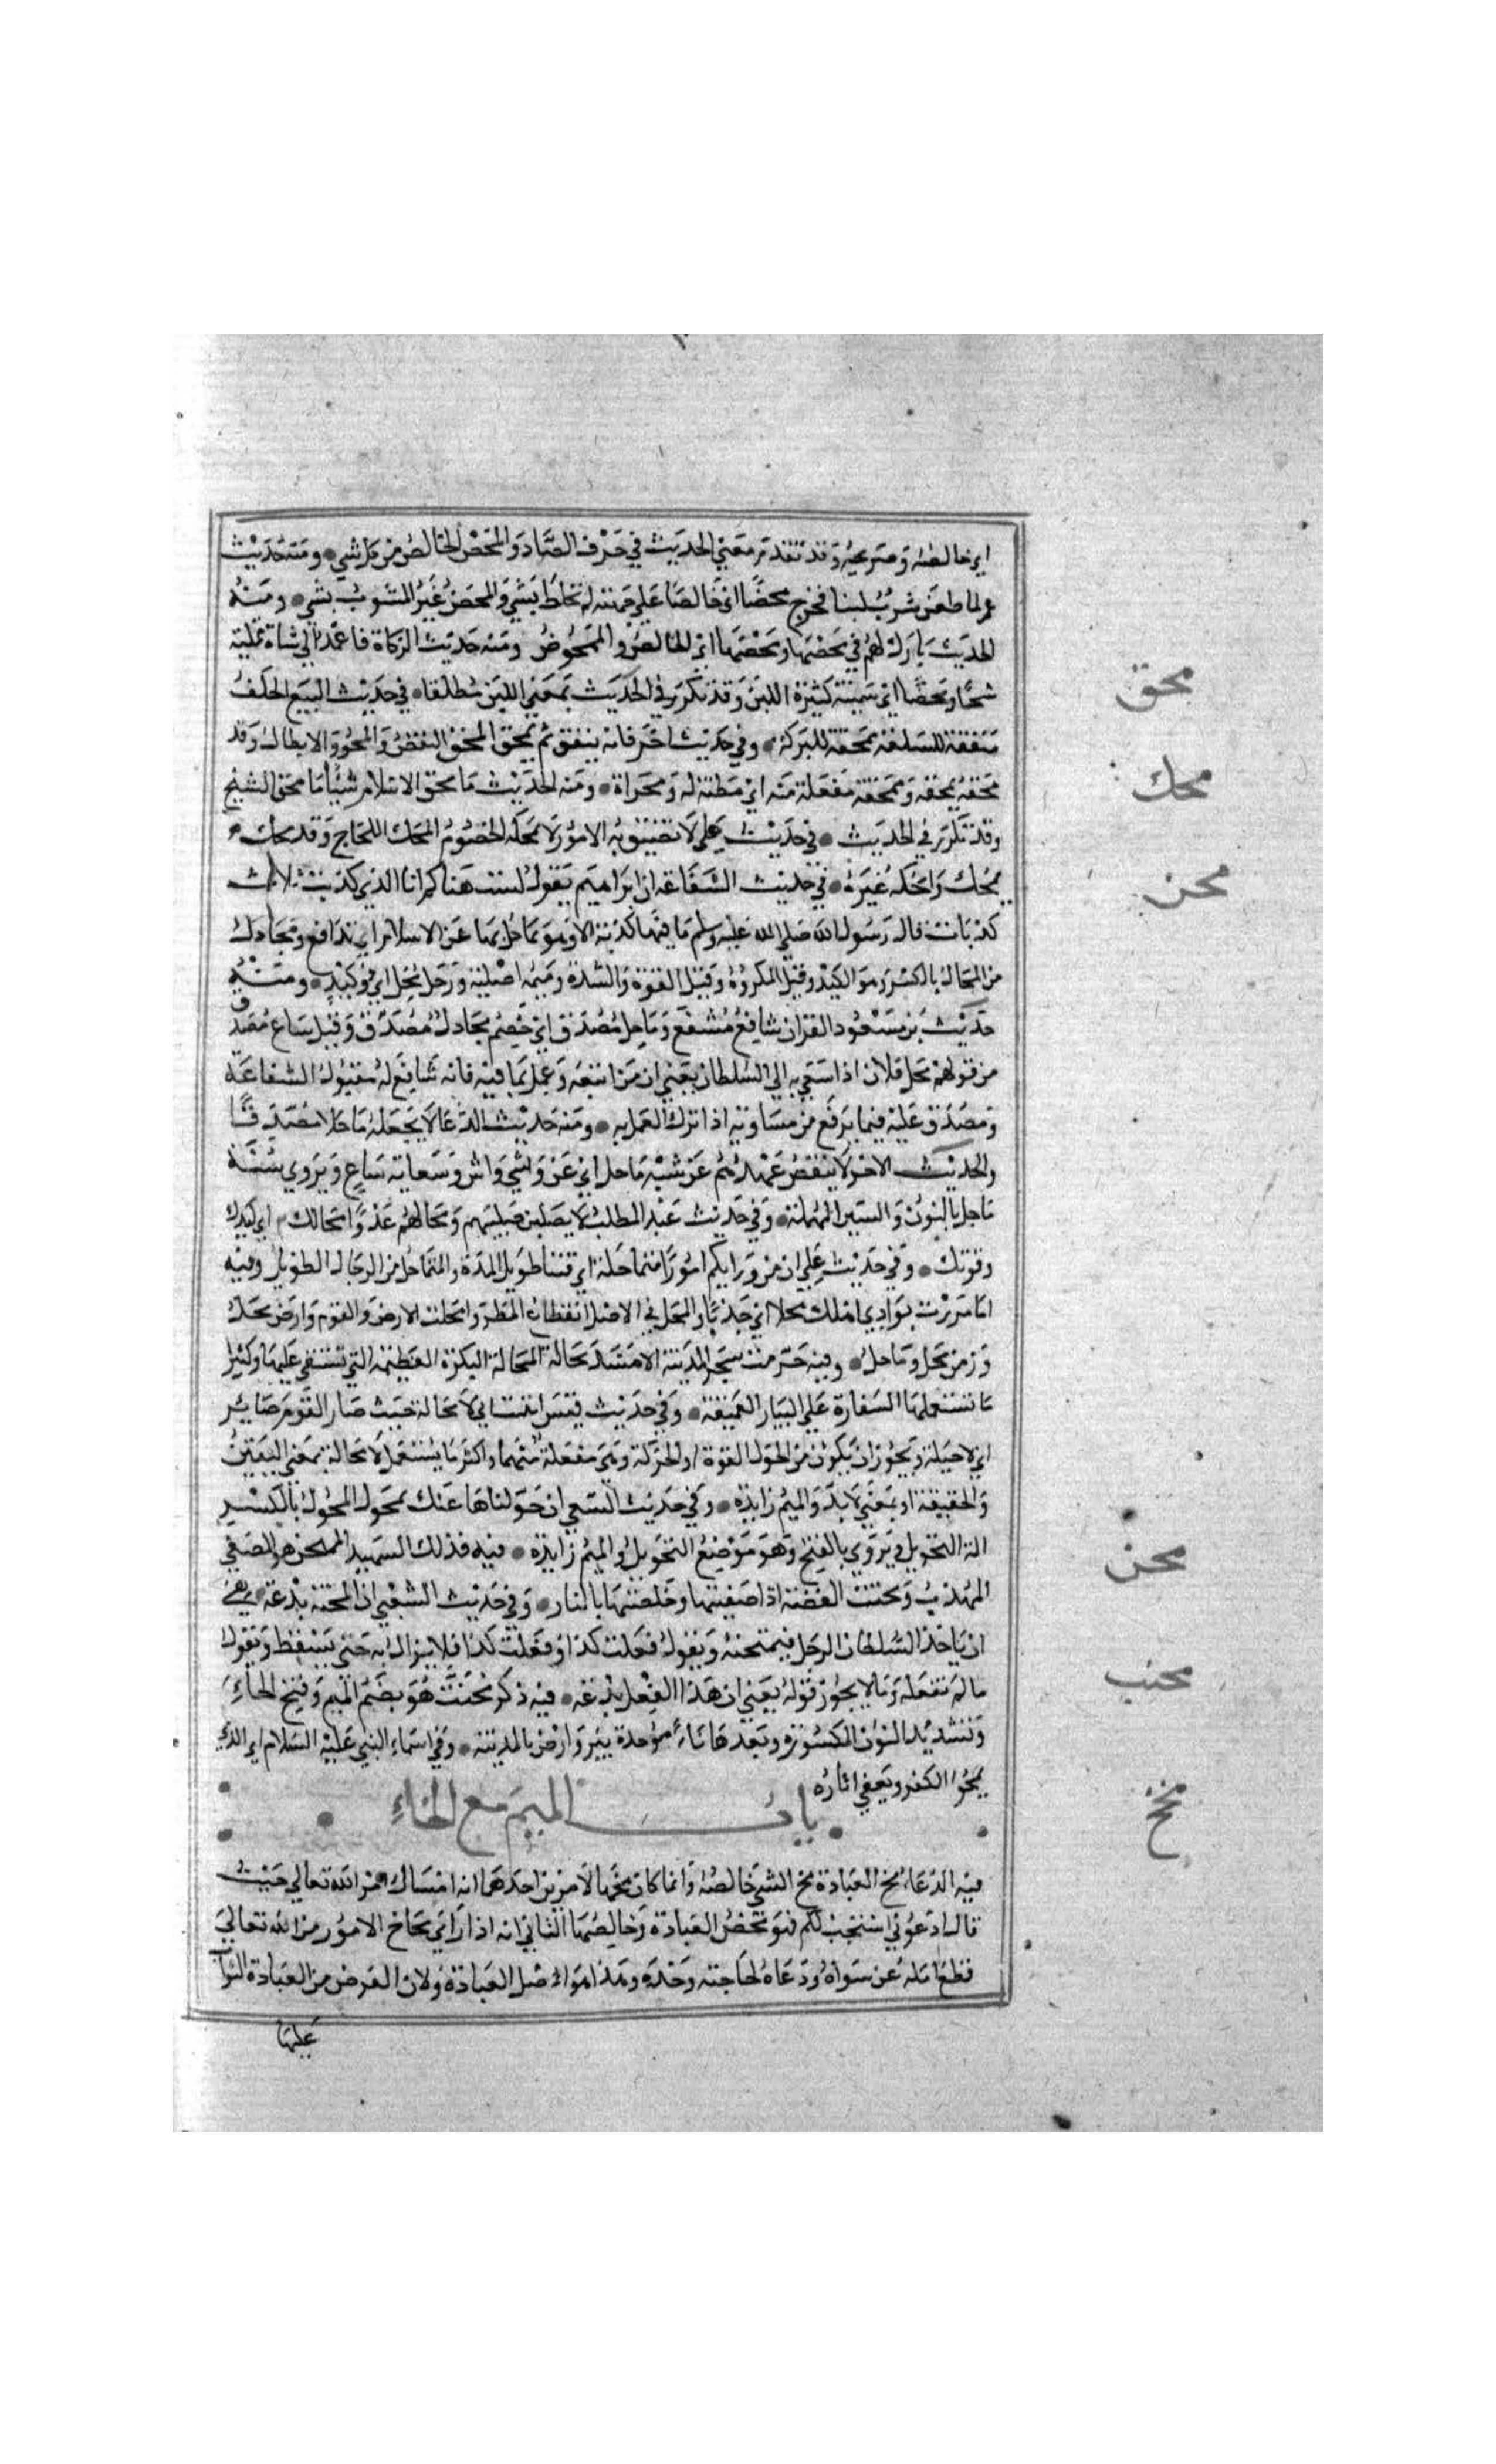 اي خالصه وصريحه وقد تقدم معني الحديث في حرف الصاد والمحض الخالص من كل شي ومنه حديث
عمر لما طعن شرب لبنا فخرج محضا اي خالصا علي جهته لم يختلط بشي والمحض غير المشوب بشي ومنه
الحديث بارك لهم في محضها ومخضها اي الخالص والممخوض ومنه حديث الزكاة فاعمد الي شاة ممتلية
شحما ومحضا اي سمينة كثيرة اللبن وقد تكرر في الحديث بمعني اللبن مطلقا في حديث البيع الحلف
منفقة للسلعة ممحقة للبركة وفي حديث اخر فانه ينفق ثم يمحق المحق النقص والمحو والابطال وقد
محقه يمحقه وممحقة مفعلة منه اي مظنة له ومحراة ومنه الحديث ما محق الاسلام شيئا ما محق الشح
وقد تكرر في الحديث في حديث علي لا تضيق به الامور ولا تمحكه الخصوم المحك اللجاج وقد محك
يمحك وامحكه غيره في حديث الشفاعة ان ابراهيم يقول لست هناكم انا الذي كذبت ثلاث
كذبات قال رسول الله صلي الله عليه وسلم ما فيها كذبة الا وهو يماحل بها عن الاسلام اي يدافع ويجادل
من المحال بالكسر وهو الكيد وقيل المكر وقيل القوة والشدة وميمه اصلية ورجل محل اي ذو كيد ومنه
حديث بن مسعود القران شافع مشفع وماحل مصدق اي خصم مجادل مصدق وقيل ساع مصدق
من قولهم محل فلان اذا سعي به الي السلطان يعني ان من اتبعه وعمل بما فيه فانه شافع له مقبول الشفاعة
ومصدق عليه فيما يرفع من مساويه اذا ترك العمل به ومنه حديث الدعا لا يجعله ماحلا مصدقا
والحديث الاخر لا ينقض عهدهم عن شيه ماحل اي عن وشي واش وسعاية ساع ويروي سنة
ماحل بالنون والسين المهملة وفي حديث عبد المطلب لا يغلبن صليبهم ومحالهم غدوا محالك اي كيدك
وقوتك وفي حديث علي ان من ورايكم امورا متماحلة اي فتنا طويل المدة والمتماحل من الرجال الطويل وفيه
اما مررت بوادي اهلك محلا اي جدبا والمحل في الاصل انقطاع المطر وامحلت الارض والقوم وارض محل
وزمن محل وماحل وفيه حرمت شجر المدينة الا مسد محالة المحالة البكرة العظيمة التي تستقي عليها وكثيرا
ما تستعملها السفارة علي البيار العميقة وفي حديث قس ايقنت اني لا محالة حيث صار القوم صاير
اي لا حيلة ويجوز ان يكون من الحول القوة او الحركة وهي مفعلة منهما واكثر ما يستعمل لا محالة بمعني اليقين
والحقيقة او بمعني لا بد والميم زايدة وفي حديث الشعبي ان حولناها عنك بمحول المحول بالكسر
الة التحويل ويروي بالفتح وهو موضع التحويل والميم زايدة فيه فذلك الشهيد الممتحن هو المصفي
المهذب ومحنت الفضة اذا صفيتها وخلصتها بالنار وفي حديث الشعبي ان المحنة بدعة هي
ان ياخذ السلطان الرجل فيمتحنه ويقول فعلت كذا وفعلت كذا فلا يزال به حتي يسقط ويقول
ما لم يفعله وما لا يجوز قوله يعني ان هذا الفعل بدعة فيه ذكر محنب هو بضم الميم وفتح الحاء
وتشديد النون المكسورة وبعدها باء موحدة بير وارض بالمدينة وفي اسماء النبي عليه السلام اي الذي
يمحوا الكفر ويعفي اثاره
باب الميم مع الخاء
فيه الدعاء مخ العبادة مخ الشي خالصه وانما كان مخها لامرين احدهما انه امتثال امر الله تعالي حيث
قال ادعوني استجب لكم فهو محض العبادة وخالصها الثاني انه اذا راي نجاح الامور من الله تعالي
قطع امله عن سواه ودعاه لحاجته وحده وهذا هو اصل العبادة ولان الغرض من العبادة الثواب
عليها
محق
محك
محن
محن
محنب
مخخ